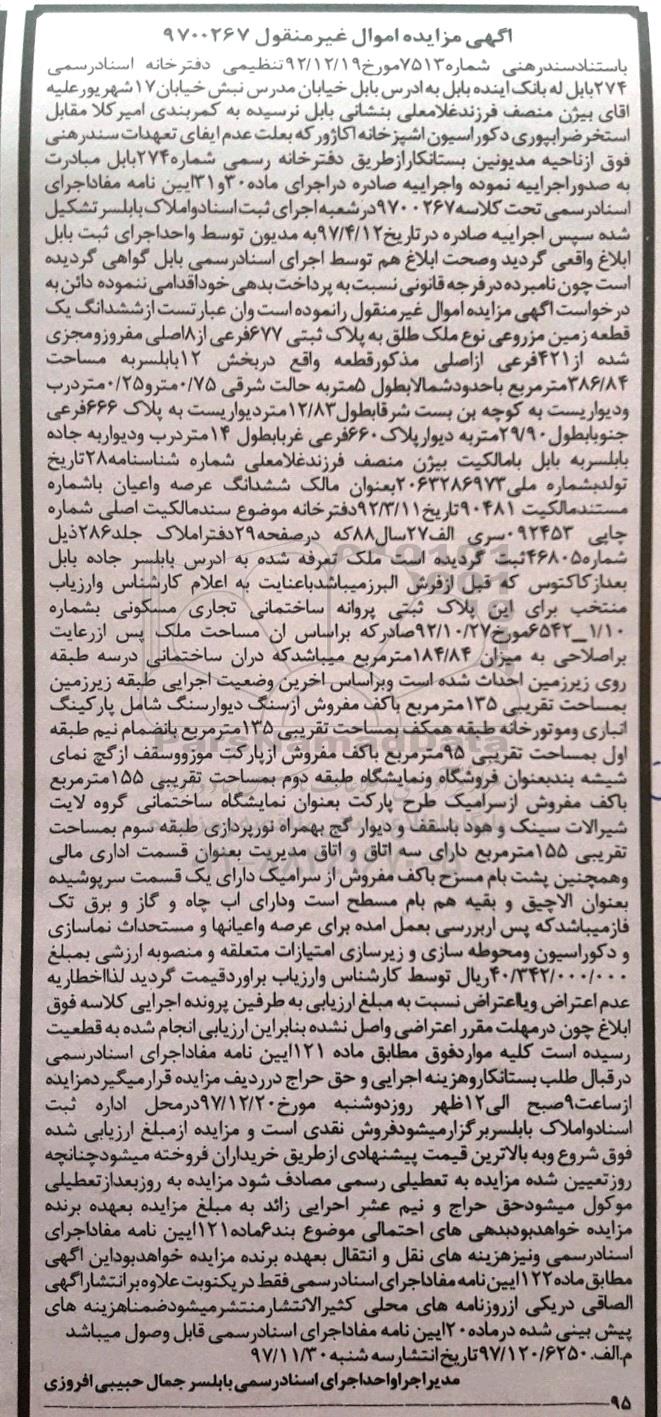 اگهی مزایده اموال غیر منقول ۹۷۰۰۲۶۷
باستنادسندرهنی شماره۷۵۱۳مورخ۹۲/۱۲/۱۹تنظیمی دفترخانه اسنادرسمی
۲۷۴بابل له بانک اینده بابل به ادرس بابل خیابان مدرس نبش خیابان۱۷شهریورعلیه
اقای بیژن منصف فرزندغلامعلی بنشانی بابل نرسیده به کمربندی امیرکلا مقابل
استخرضرابپوری دکوراسیون اشپزخانه اکاژورکه بعلت عدم ایفای تعهدات سندرهنی
فوق ازناحیه مدیونین بستانکارازطریق دفترخانه رسمی شماره۲۷۴بابل مبادرت
به صدوراجراییه نموده واجراییه صادره دراجرای ماده۳۰و۳۱ایین نامه مفاداجرای
اسنادرسمی تحت کلاسه۹۷۰۰۲۶۷درشعبه اجرای ثبت اسنادواملاک بابلسرتشکیل
شده سپس اجراییه صادره درتاریخ۹۷/۴/۱۲به مدیون توسط واحداجرای ثبت بابل
ابلاغ واقعی گردید وصحت ابلاغ هم توسط اجرای اسنادرسمی بابل گواهی گردیده
است چون نامبرده درفرجه قانونی نسبت به پرداخت بدهی خوداقدامی ننموده دائن به
درخواست اگهی مزایده اموال غیرمنقول رانموده است وان عبارتست ازششدانگ یک
قطعه زمین مزروعی نوع ملک طلق به پلاک ثبتی ۶۷۷فرعی از۸اصلی مفروزومجزی
شده از۴۲۱فرعی ازاصلی مذکورقطعه واقع دربخش ۱۲بابلسربه مساحت
۳۸۶/۸۴مترمربع باحدودشمالابطول ۵متربه حالت شرقی ۰/۷۵مترو۰/۲۵متردرب
ودیواریست به کوچه بن بست شرقابطول۱۲/۸۳متردیواریست به پلاک ۶۶۶فرعی
جنوبابطول۲۹/۹۰متربه دیوارپلاک۶۶۰فرعی غربابطول ۱۴متردرب ودیواربه جاده
بابلسربه بابل بامالکیت بیژن منصف فرزندغلامعلی شماره شناسنامه۲۸تاریخ
تولدبشماره ملی۲۰۶۳۲۸۶۹۷۳بعنوان مالک ششدانگ عرصه واعیان باشماره
مستندمالکیت ۹۰۴۸۱تاریخ۹۲/۳/۱۱دفترخانه موضوع سندمالکیت اصلی شماره
چاپی ۰۹۲۴۵۳سری الف۲۷سال۸۸که درصفحه۲۹دفتراملاک جلد۲۸۶ذیل
شماره۴۶۸۰۵ثبت گردیده است ملک تعرفه شده به ادرس بابلسر جاده بابل
بعدازکاکتوس که قبل ازفرش البرزمیباشدباعنایت به اعلام کارشناس وارزیاب
منتخب برای این پلاک ثبتی پروانه ساختمانی تجاری مسکونی بشماره
۱/۱۰_۶۵۴۲مورخ۹۲/۱۰/۲۷صادرکه براساس ان مساحت ملک پس ازرعایت
براصلاحی به میزان ۱۸۴/۸۴مترمربع میباشدکه دران ساختمانی درسه طبقه
روی زیرزمین احداث شده است وبراساس اخرین وضعیت اجرایی طبقه زیرزمین
بمساحت تقریبی ۱۳۵مترمربع باکف مفروش ازسنگ دیوارسنگ شامل پارکینگ
انباری وموتورخانه طبقه همکف بمساحت تقریبی ۱۳۵مترمربع بانضمام نیم طبقه
اول بمساحت تقریبی ۹۵مترمربع باکف مفروش ازپارکت موزووسقف ازگچ نمای
شیشه بندبعنوان فروشگاه ونمایشگاه طبقه دوم بمساحت تقریبی ۱۵۵مترمربع
باکف مفروش ازسرامیک طرح پارکت بعنوان نمایشگاه ساختمانی گروه لایت
شیرالات سینک و هود باسقف و دیوار گچ بهمراه نورپردازی طبقه سوم بمساحت
تقریبی ۱۵۵مترمربع دارای سه اتاق و اتاق مدیریت بعنوان قسمت اداری مالی
وهمچنین پشت بام مسزح باکف مفروش از سرامیک دارای یک قسمت سرپوشیده
بعنوان الاچیق و بقیه هم بام مسطح است ودارای اب چاه و گاز و برق تک
فازمیباشدکه پس اربررسی بعمل امده برای عرصه واعیانها و مستحداث نماسازی
و دکوراسیون ومحوطه سازی و زیرسازی امتیازات متعلقه و منصوبه ارزشی بمبلغ
۴۰/۳۴۲/۰۰۰/۰۰۰ریال توسط کارشناس وارزیاب براوردقیمت گردید لذااخطاریه
عدم اعتراض ویااعتراض نسبت به مبلغ ارزیابی به طرفین پرونده اجرایی کلاسه فوق
ابلاغ چون درمهلت مقرر اعتراضی واصل نشده بنابراین ارزیابی انجام شده به قطعیت
رسیده است کلیه مواردفوق مطابق ماده ۱۲۱ایین نامه مفاداجرای اسنادرسمی
درقبال طلب بستانکاروهزینه اجرایی و حق حراج درردیف مزایده قرارمیگیردمزایده
ازساعت۹صبح الی۱۲ظهر روزدوشنبه مورخ۹۷/۱۲/۲۰درمحل اداره ثبت
اسنادواملاک بابلسربرگزارمیشودفروش نقدی است و مزایده ازمبلغ ارزیابی شده
فوق شروع وبه بالاترین قیمت پیشنهادی ازطریق خریداران فروخته میشودچنانچه
روزتعیین شده مزایده به تعطیلی رسمی مصادف شود مزایده به روزبعدازتعطیلی
موکول میشودحق حراج و نیم عشر اجرایی زائد به مبلغ مزایده بعهده برنده
مزایده خواهدبودبدهی های احتمالی موضوع بند۶ماده۱۲۱ایین نامه مفاداجرای
اسنادرسمی ونیزهزینه های نقل و انتقال بعهده برنده مزایده خواهدبوداین اگهی
مطابق ماده۱۲۲ایین نامه مفاداجرای اسنادرسمی فقط دریکنوبت علاوه برانتشاراگهی
الصاقی دریکی ازروزنامه های محلی کثیرالانتشارمنتشرمیشودضمناهزینه های
پیش بینی شده درماده۲۰ایین نامه مفاداجرای اسنادرسمی قابل وصول میباشد
م.الف.۹۷/۱۲۰/۶۲۵۰تاریخ انتشارسه شنبه ۹۷/۱۱/۳۰
مدیراجراواحداجرای اسنادرسمی بابلسر جمال حبیبی افروزی
۹۵
ParsNamadData